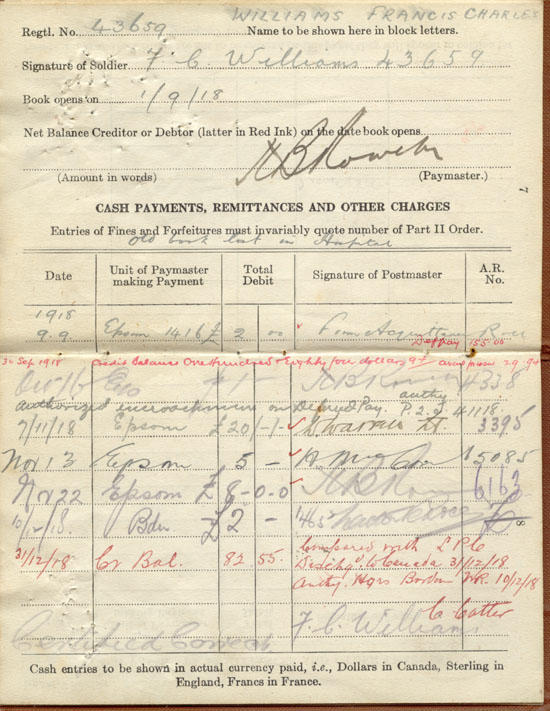 WILLIAMS FRANCIS CHARLES
Regtl. No. 43659 Name to be shown here in block letters.
Signature of Soldier F C Williams 43659
Book opens on 1/9/18
Net Balance Creditor or Debtor (latter in Red Ink) on the date book opens
(Amount in words) (Paymaster.)
7
CASH PAYMENTS, REMITTANCES AND OTHER CHARGES
Entries of Fines and Forfeitures must invariably quote number of Part II Order.
Old book lost in Hospital
Date Unit of Paymaster making Payment Total Debit Signature of Postmaster A.R. No.
1918
9.9. Epsom 1416 £ 2 00 From Acquittance Roll
Def pay 155 00
30 Sep 1918 Credit Balance One Hundred & Eighty four dollars 94 29 94
4338
authorized encroachment on Deferred Pay. authy P.2.d 41118.
7/11/18 Epsom £20/-/- 3395
Nov 13 Epsom 5 - 5085
Nov 22 Epsom £8-0-0 6163
10/12/18. Bdn £2 -
8
31/12/18 Cr Bal. 82 55. Compared with L P C
"Dischg" to Canada 31/12/18
Authy. Hqrs Bordon 10/12/18
C Cotter
F. C. Williams
Certified Correct
Cash entries to be shown in actual currency paid, i.e., Dollars in Canada, Sterling in
England, Francs in France.